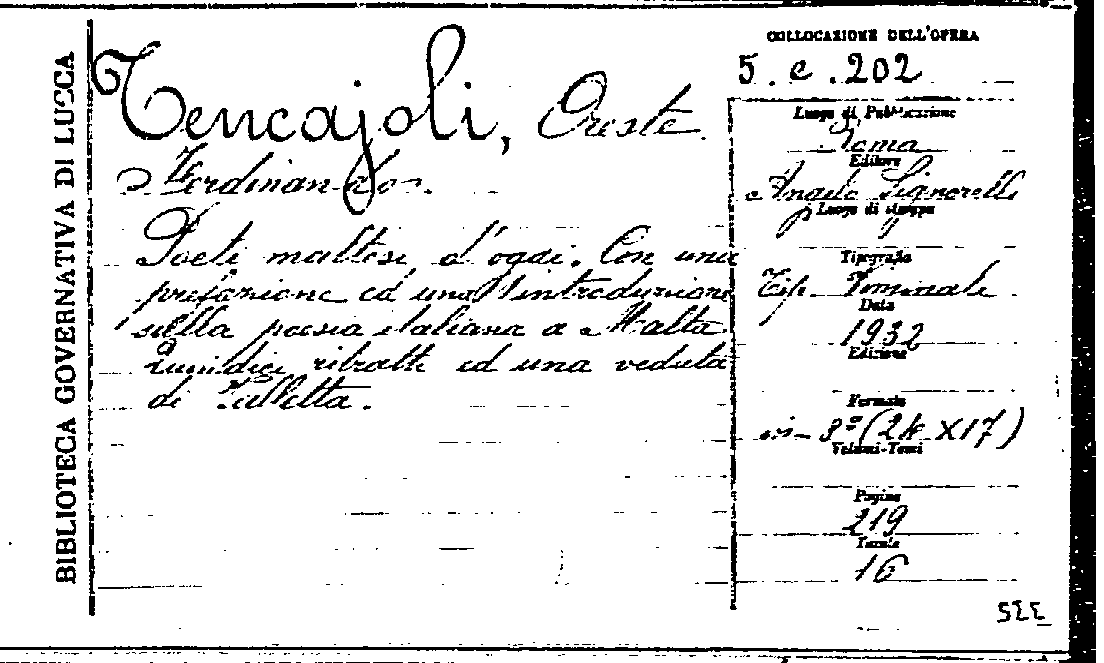 BIBLIOTECA GOVERNATIVA DI LUCCA
Tencajoli, Oreste
Ferdinando.
Poeti maltesi d'oggi. Con una
prefazione ed una introduzione
sulla poesia italiana a Malta
Quindici ritratti ed una veduta
di Valletta.
COLLOCAZIONE DELL'OPERA
5. e. 202
Luogo di Pubblicazione
Roma
Editore
Angelo Signorelli
Luogo di stampa
Tipografia
Tip. Viminale
Data
1932
Edizione
Formato
in-8° (24 X 17)
Volumi-Tomi
Pagine
219
Tavole
16